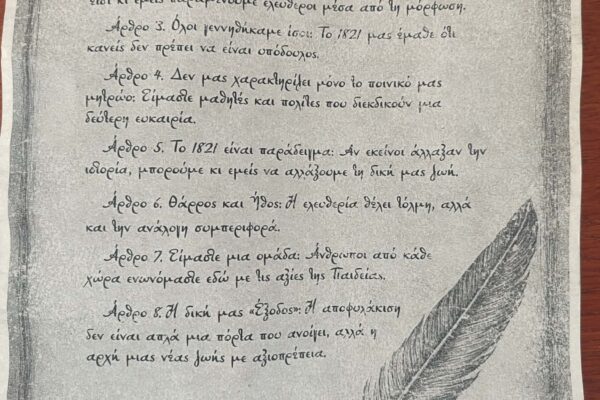 έτσι κι εμείς παραμένουμε ελεύθεροι μέσα από τη μόρφωση.
Άρθρο 3. Όλοι γεννηθήκαμε ίσοι: Το 1821 μας έμαθε ότι
κανείς δεν πρέπει να είναι υπόδουλος.
Άρθρο 4. Δεν μας χαρακτηρίζει μόνο το ποινικό μας
μητρώο: Είμαστε μαθητές και πολίτες που διεκδικούν μια
δεύτερη ευκαιρία.
Άρθρο 5. Το 1821 είναι παράδειγμα: Αν εκείνοι άλλαξαν την
ιστορία, μπορούμε κι εμείς να αλλάξουμε τη δική μας ζωή.
Άρθρο 6. Θάρρος και Ήθος: Η ελευθερία θέλει τόλμη, αλλά
και την ανάλογη συμπεριφορά.
Άρθρο 7. Είμαστε μια ομάδα: Άνθρωποι από κάθε
χώρα ενωνόμαστε εδώ με τις αξίες της Παιδείας.
Άρθρο 8. Η δική μας «Έξοδος»: Η αποφυλάκιση
δεν είναι απλά μια πόρτα που ανοίγει, αλλά η
αρχή μιας νέας ζωής με αξιοπρέπεια.